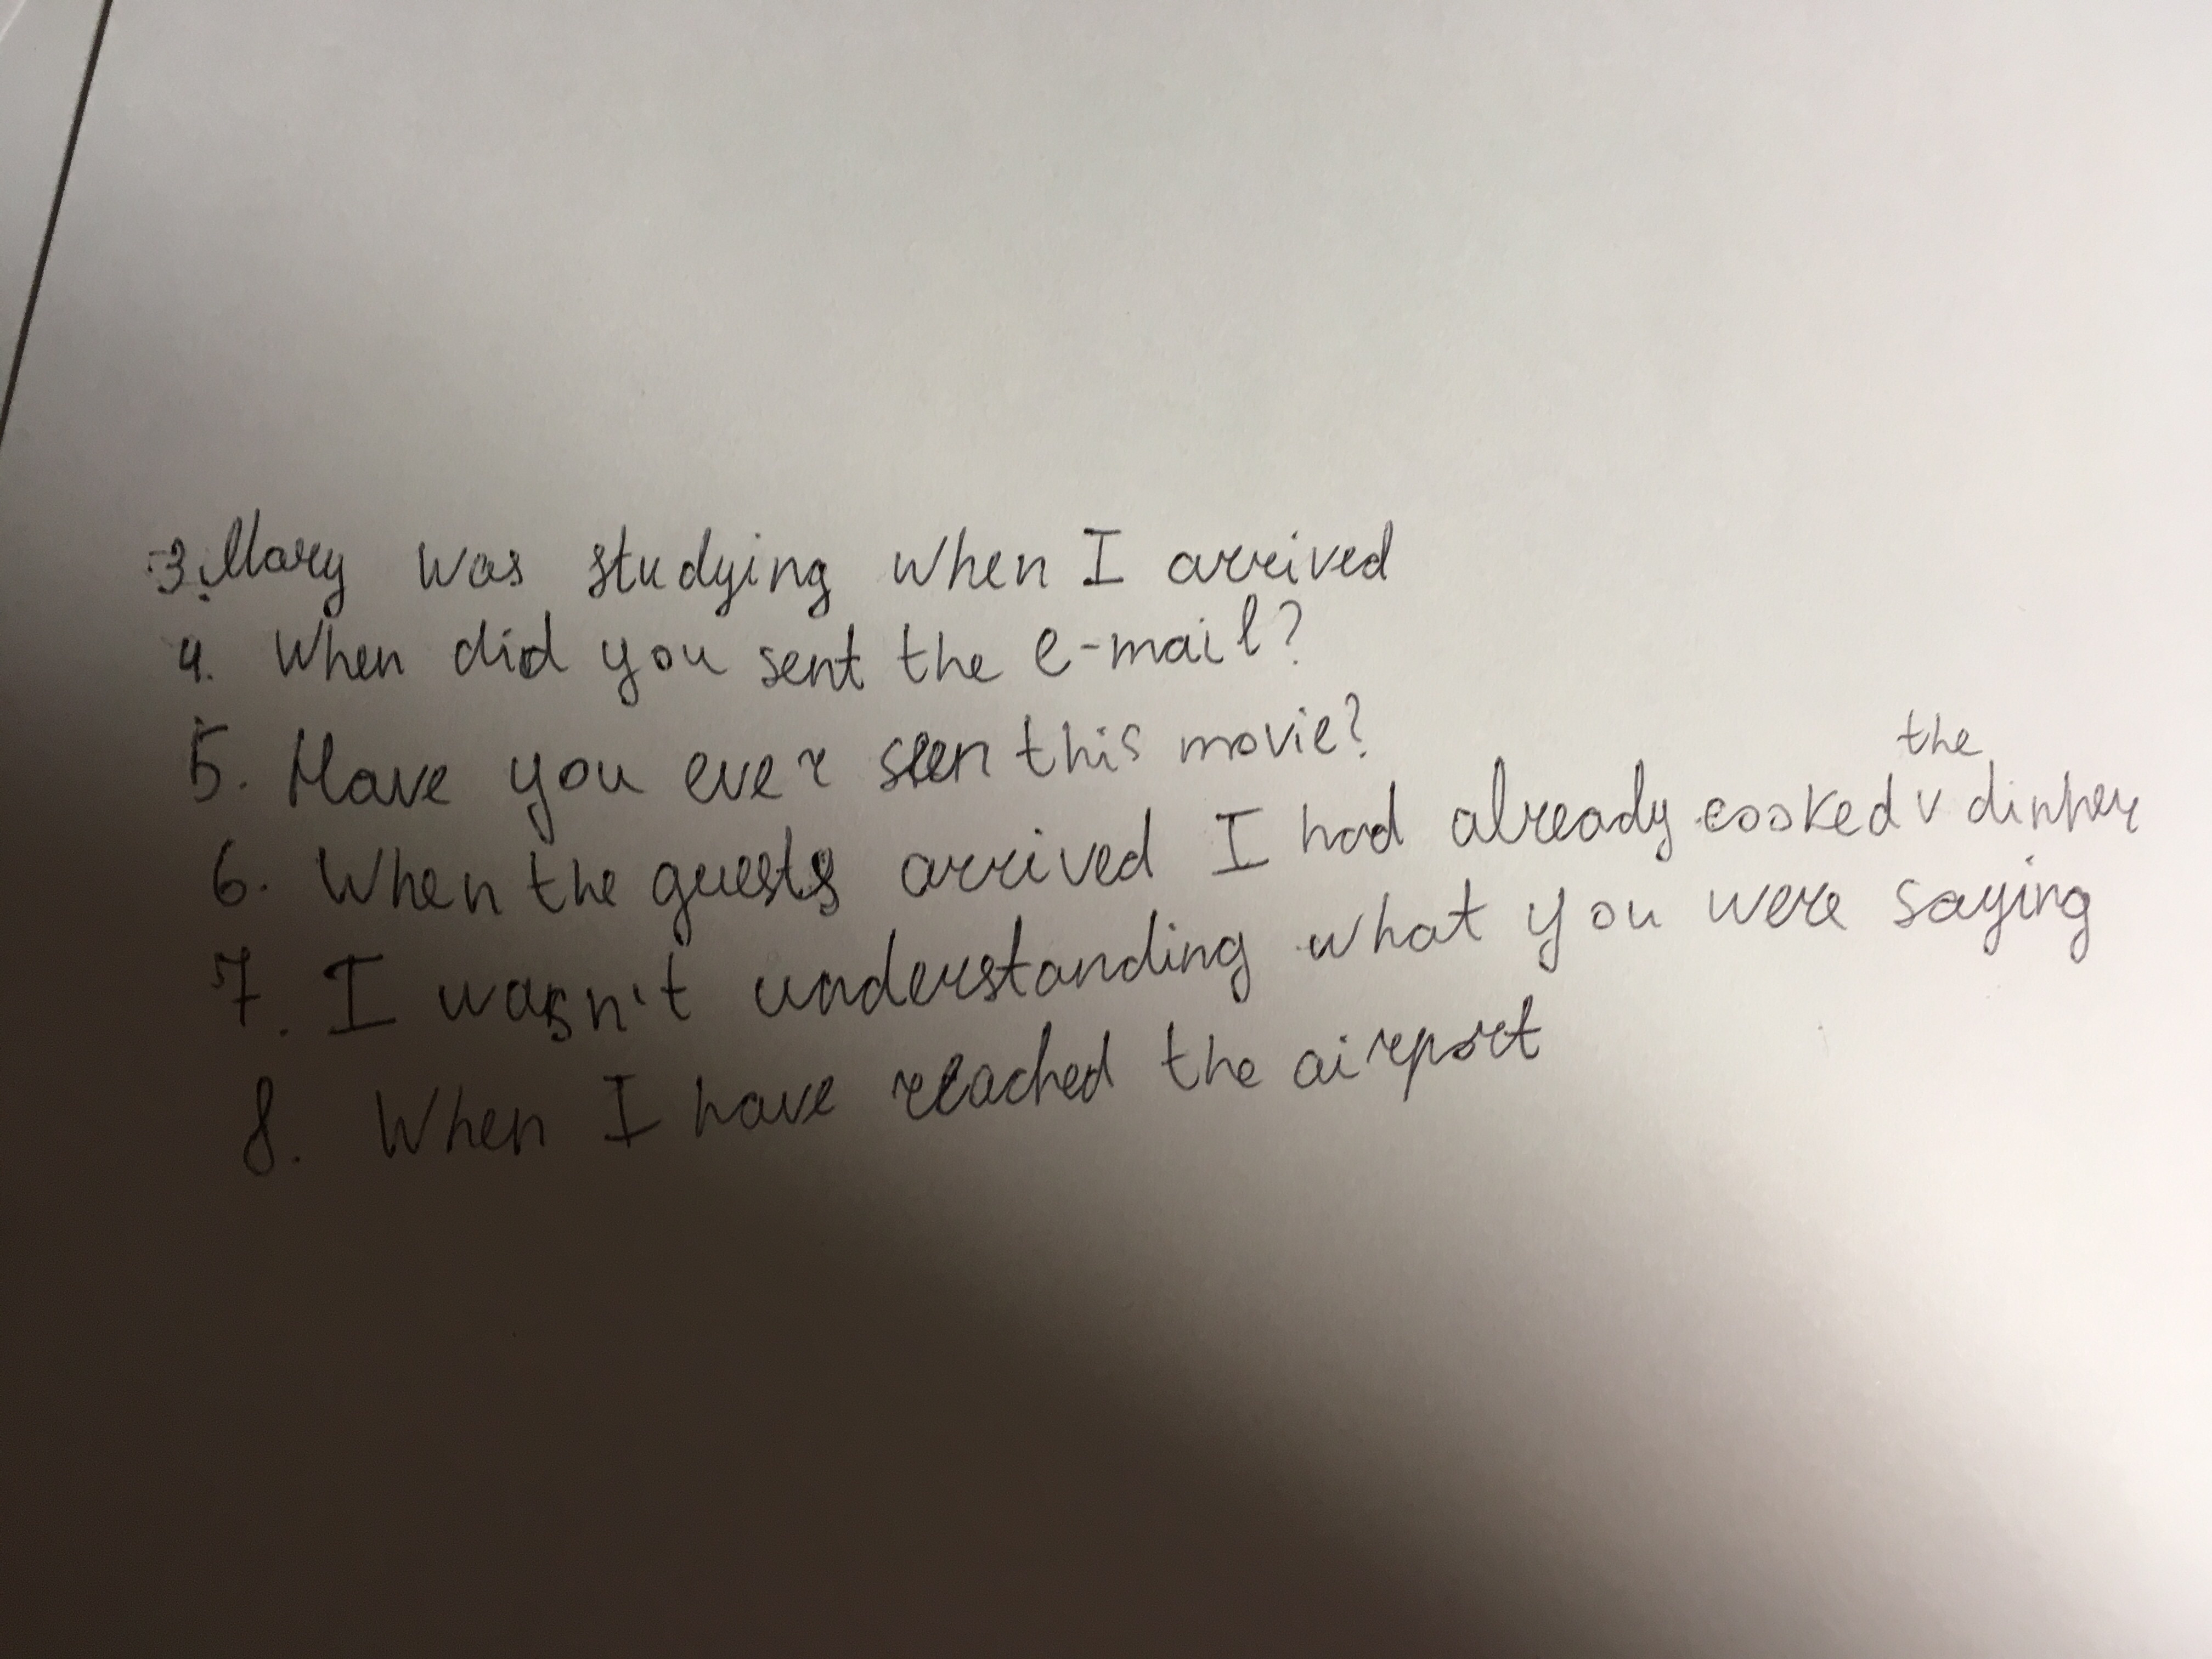 3. Mary was studying when I arrived
4. When did you sent the e-mail?
5. Have you ever seen this movie?
6. When the guests arrived I had already cooked the dinner
7. I wasn't understanding what you were saying
8. When I have reached the airport